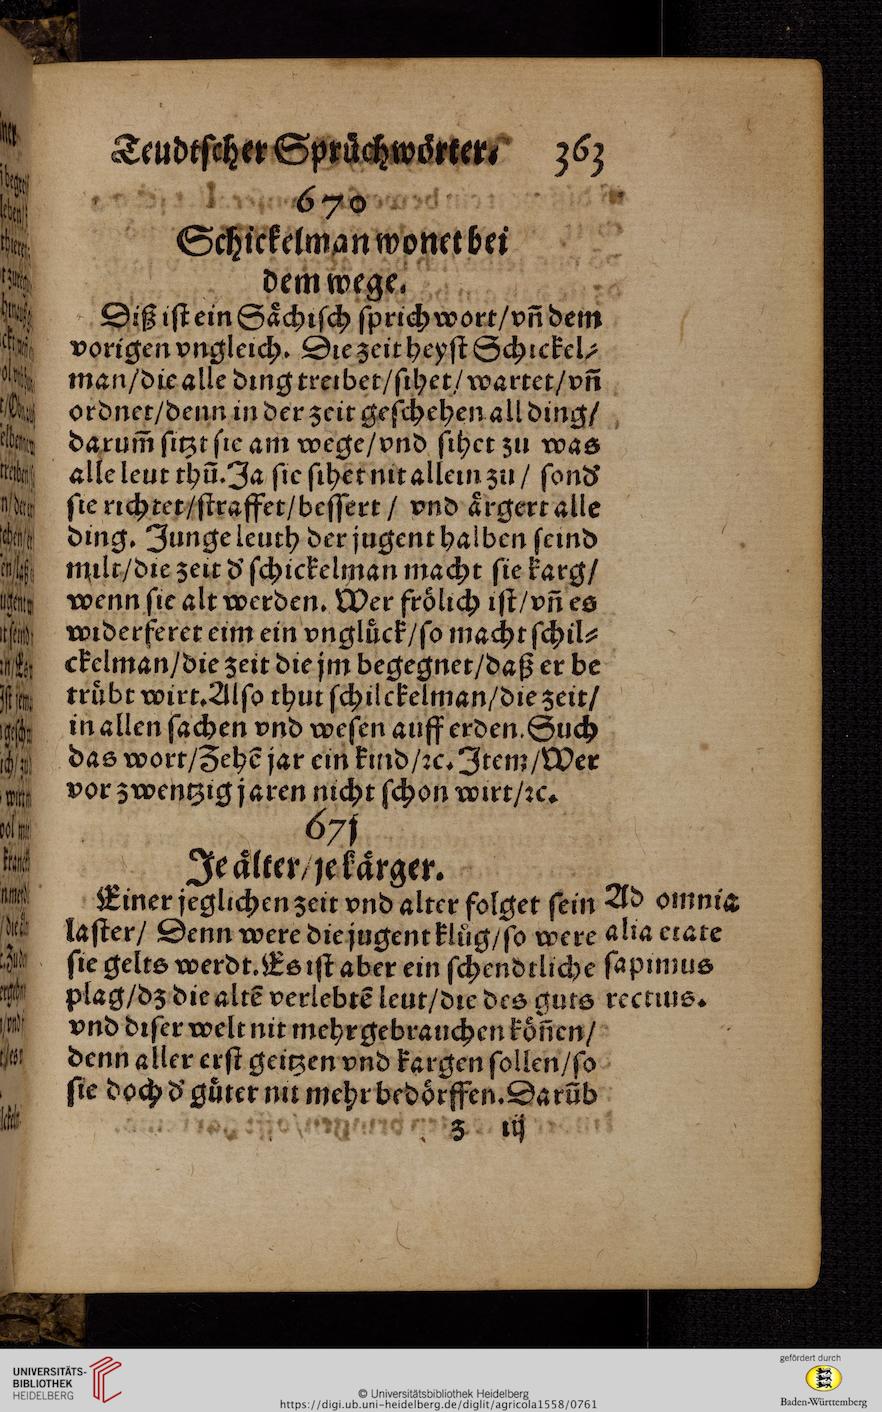 Teudtſcher Sprüchwörter. 363
670
Schickelman wonet bei
dem wege.
Diß iſt ein Sächiſch ſprichwort/vñ dem
vorigen vngleich. Die zeit heyſt Schickel⸗
man/die alle ding treibet/ſihet/wartet/vñ
ordnet/denn in der zeit geſchehen all ding/
darum̃ ſitzt ſie am wege/vnd ſihet zu was
alle leut thũ. Ja ſie ſihet nit allein zu / ſond'
ſie richtet/ſtraffet/beſſert / vnd ärgert alle
ding. Junge leuth der jugent halben ſeind
milt/die zeit d' ſchickelman macht ſie karg/
wenn ſie alt werden. Wer frölich iſt/vñ es
widerferet eim ein vnglück/ſo macht ſchil⸗
ckelman/die zeit die jm begegnet/daß er be
trübt wirt. Alſo thut ſchilckelman/die zeit/
in allen ſachen vnd weſen auff erden. Such
das wort/Zehẽ jar ein kind/ꝛc. Item/Wer
vor zwentzig jaren nicht ſchon wirt/ꝛc.
671
Je älter/je kärger.
Einer jeglichen zeit vnd alter folget ſein
laſter/ Denn were die jugent klůg/ſo were
ſie gelts werdt. Es iſt aber ein ſchendtliche
plag/dz die altẽ verlebtẽ leut/die des guts
vnd diſer welt nit mehr gebrauchen köñen/
denn aller erſt geitzen vnd kargen ſollen/ſo
ſie doch d' güter nit mehr bedörffen. Darũb
Ad omnia
alia etate
ſapimus
rectius.
z iij
UNIVERSITÄTS-
BIBLIOTHEK
HEIDELBERG
© Universitätsbibliothek Heidelberg
https://digi.ub.uni-heidelberg.de/diglit/agricola1558/0761
gefördert durch
Baden-Württemberg